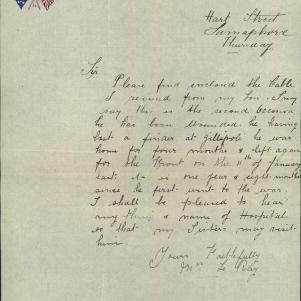 Hart Street
Semaphore
Thursday
Sir
Please find enclosed the Cable
I received from my son. I may
say this is the second occasion
he has been Wounded he having
lost a finger at Gillipole he was
home for four months & left again
for the Front on the 11th of January
last. it is one year & eight months
since he first went to the war.
I shall be pleased to hear
any thing & name of Hospital
so that my Sisters may visit
him.
Yours Faithfully
Mrs L Ray